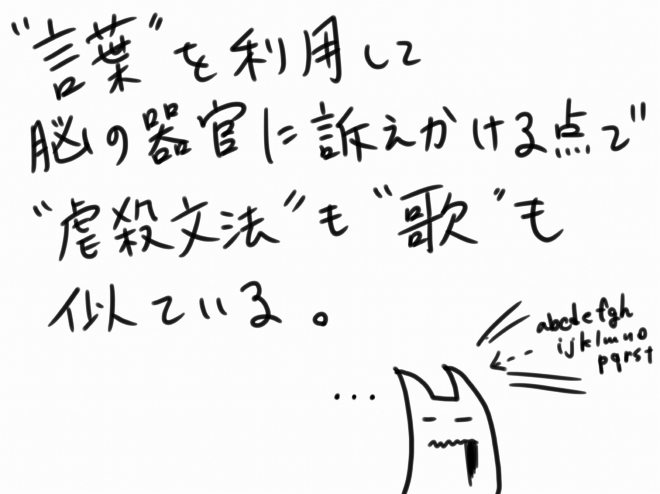 "言葉"を利用して
脳の器官に訴えかける点で
"虐殺文法"も"歌"も
似ている。
abcdefgh
ijklmno
pqrst
...